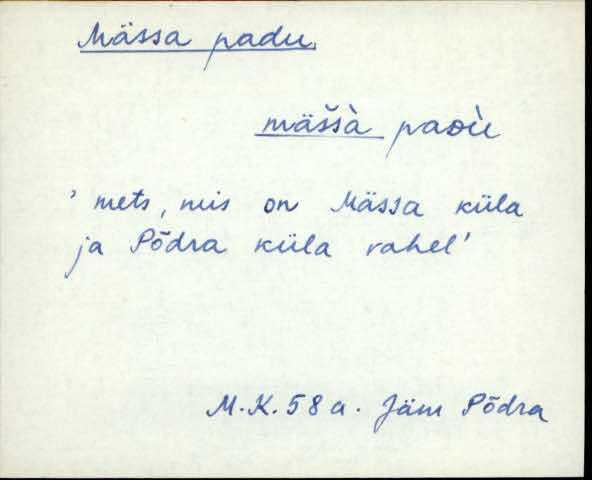 Mässa padu,
mäs̆s̀à paᴅù
' mets, mis on Mässa küla
ja Põdra küla vahel'
M.K. 58 a. Jäm Põdra